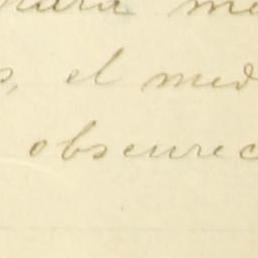 para me
s, el med
obscurec